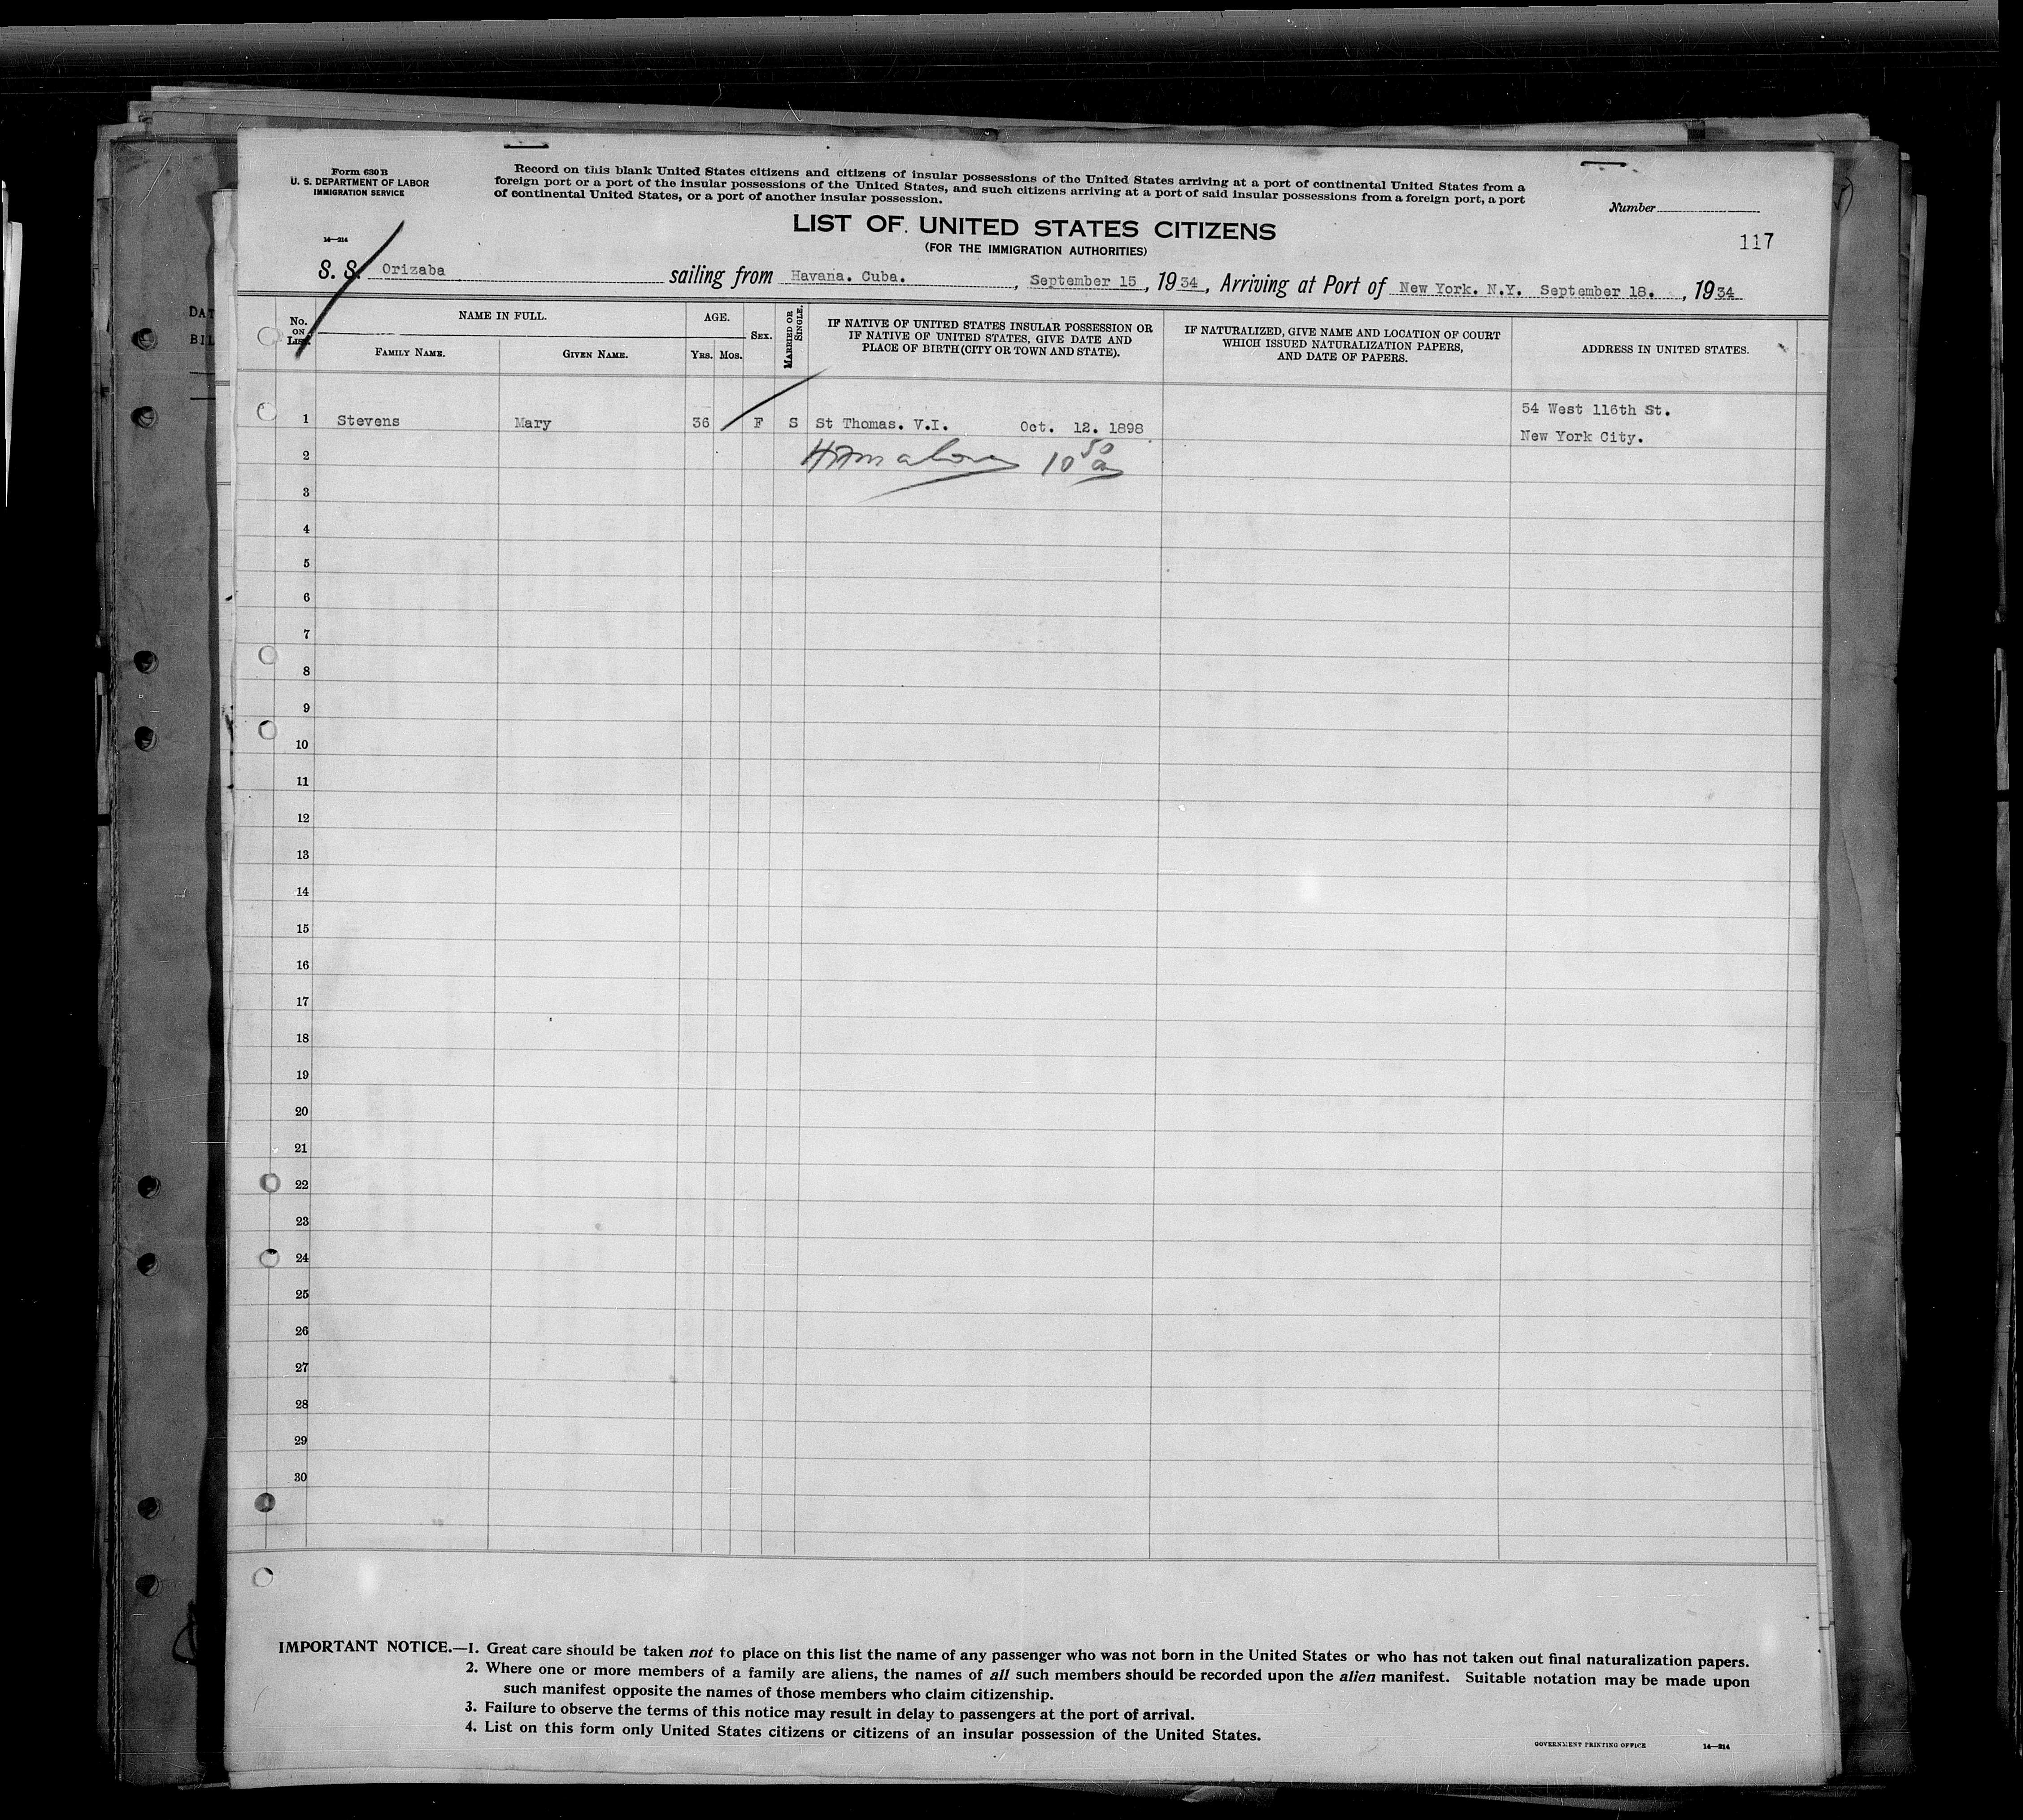 Form 630 B
U. S. DEPARTMENT OF LABOR
IMMIGRATION SERVICE
14—214
Record on this blank United States citizens and citizens of insular possessions of the United States arriving at a port of continental United States from a
foreign port or a port of the insular possessions of the United States, and such citizens arriving at a port of said insular possessions from a foreign port, a port
of continental United States, or a port of another insular possession.
Number
LIST OF UNITED STATES CITIZENS
(FOR THE IMMIGRATION AUTHORITIES)
117
S. S. Orizaba sailing from Havana. Cuba. , September 15 , 1934 , Arriving at Port of New York. N.Y. September 18. , 1934
No. ON LIST.
NAME IN FULL.
FAMILY NAME.
GIVEN NAME.
AGE.
YRS. MOS.
SEX.
MARRIED OR SINGLE.
IF NATIVE OF UNITED STATES INSULAR POSSESSION OR
IF NATIVE OF UNITED STATES, GIVE DATE AND
PLACE OF BIRTH (CITY OR TOWN AND STATE).
IF NATURALIZED, GIVE NAME AND LOCATION OF COURT
WHICH ISSUED NATURALIZATION PAPERS,
AND DATE OF PAPERS.
ADDRESS IN UNITED STATES.
1 Stevens Mary 36 F S St Thomas. V.I. Oct. 12. 1898 54 West 116th St.
New York City.
2
3
4
5
6
7
8
9
10
11
12
13
14
15
16
17
18
19
20
21
22
23
24
25
26
27
28
29
30
IMPORTANT NOTICE.—1. Great care should be taken not to place on this list the name of any passenger who was not born in the United States or who has not taken out final naturalization papers.
2. Where one or more members of a family are aliens, the names of all such members should be recorded upon the alien manifest. Suitable notation may be made upon
such manifest opposite the names of those members who claim citizenship.
3. Failure to observe the terms of this notice may result in delay to passengers at the port of arrival.
4. List on this form only United States citizens or citizens of an insular possession of the United States.
GOVERNMENT PRINTING OFFICE 14—214